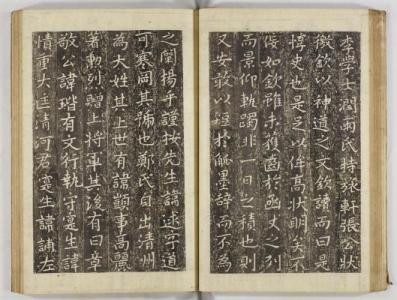 李學士潤雨氏持旅軒張公狀
徵欽以神道之文欽讀而曰是
惇史也是足以侔高狀明矣不
佞如欽雖未獲齒於函丈之列
而景仰軌躅非一日之積也則
又安敢以短於觚墨辭而不為
之闡揚乎謹按先生諱逑字道
可寒岡其號也鄭氏自出清州
為大姓其上世有諱顗事高麗
著勳烈贈上將軍其後有曰章
敬公諱瑎有文行軌守寔生諱
重大匡清河君寔生諱誧左